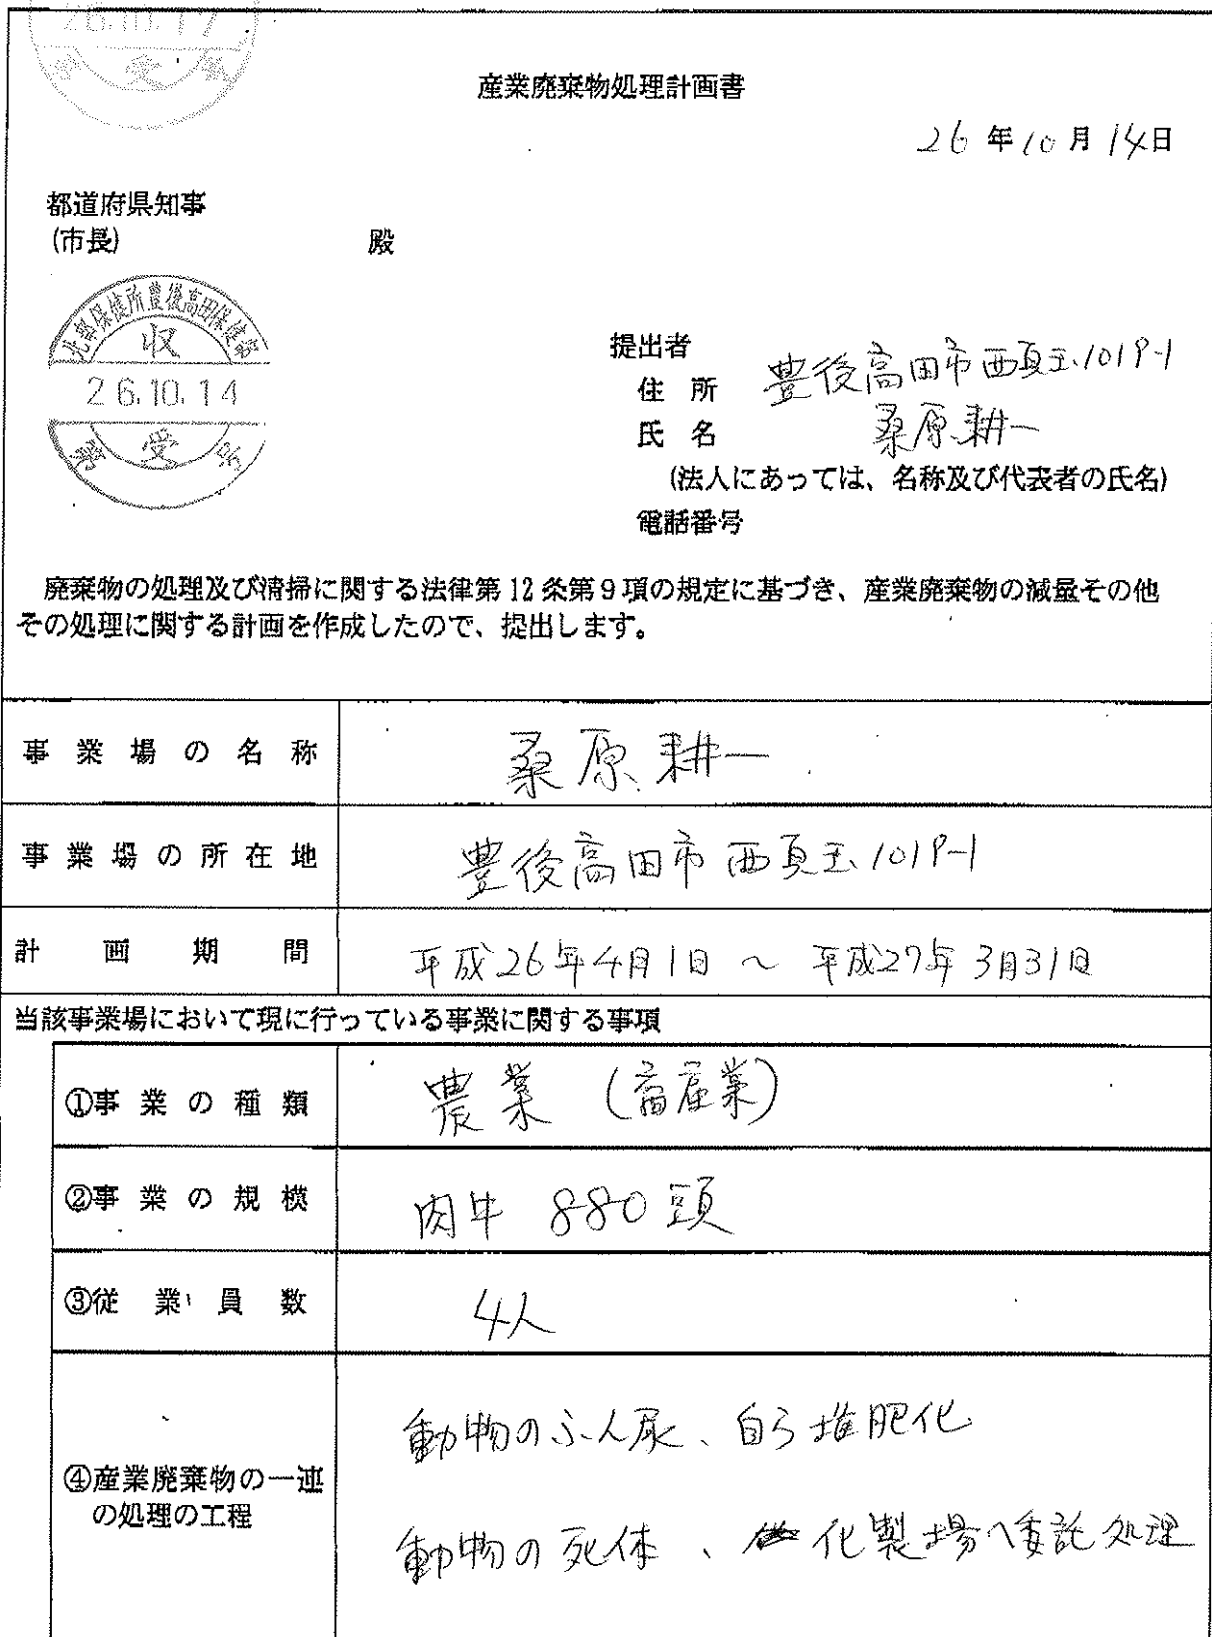 26.10.17
受
産業廃棄物処理計画書
26年10月14日
都道府県知事
(市長) 殿
北部保健所豊後高田保健部
収
26.10.14
受
提出者
住所 豊後高田市西真玉1019-1
氏名 桑原耕一
(法人にあっては、名称及び代表者の氏名)
電話番号
廃棄物の処理及び清掃に関する法律第12条第9項の規定に基づき、産業廃棄物の減量その他
その処理に関する計画を作成したので、提出します。
事業場の名称 桑原耕一
事業場の所在地 豊後高田市西真玉1019-1
計画期間 平成26年4月1日 ~ 平成27年3月31日
当該事業場において現に行っている事業に関する事項
①事業の種類 農業 (畜産業)
②事業の規模 肉牛 880頭
③従業員数 4人
④産業廃棄物の一連
の処理の工程
動物のふん尿、自ら堆肥化
動物の死体、化製場へ委託処理